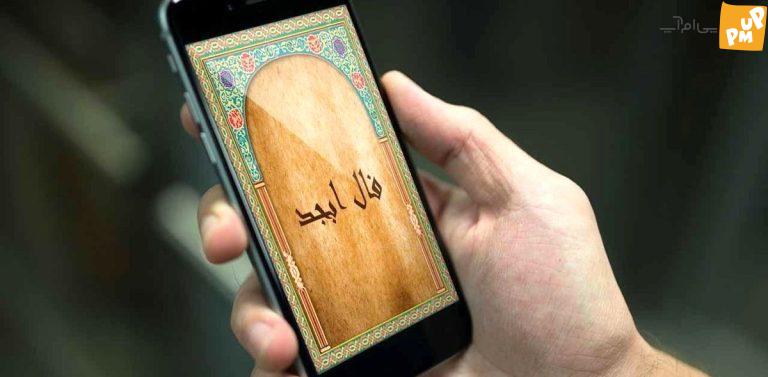 پی‌ام‌آپ
UP
PM
فال ابجد